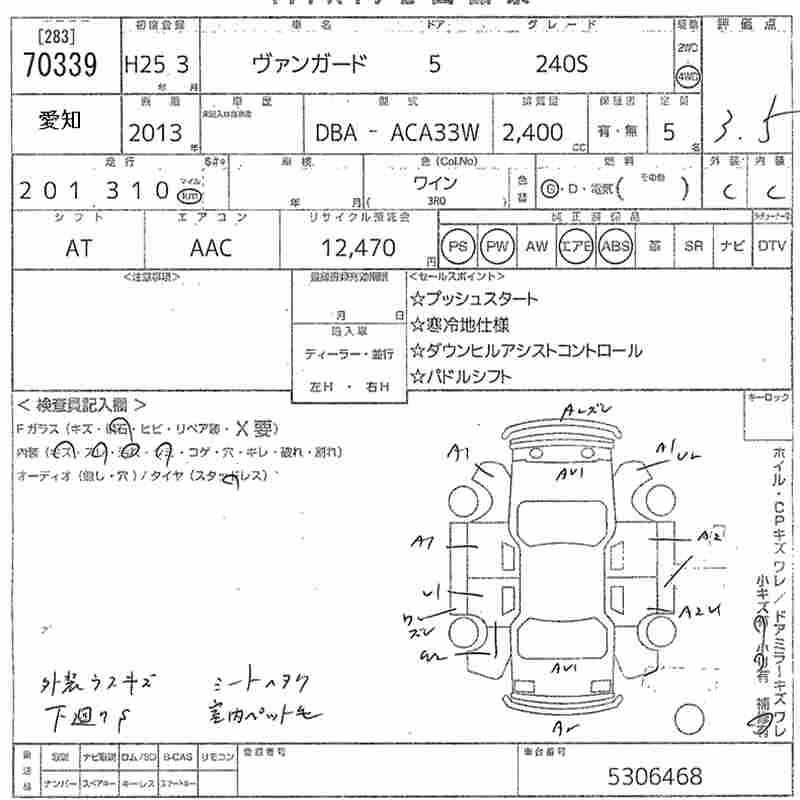 [283]
70339
初度登録
車名
ドア
グレード
評価点
H25 3
年 月
ヴァンガード
5
240S
2WD
4WD
愛知
車歴
型式
排気量
保証書
定員
2013
年
DBA - ACA33W
2,400
CC
有・無
5
名
3.5
走行
車検
色(Col.No)
燃料
外装
内装
201,310
マイル
km
年 月
ワイン
(3R0)
色替
G・D・電気( その他 )
C
C
シフト
エアコン
リサイクル預託金
純正装備品
AT
AAC
12,470
円
PS
PW
AW
エアB
ABS
革
SR
ナビ
DTV
<注意事項>
月 日
<セールスポイント>
☆プッシュスタート
☆寒冷地仕様
☆ダウンヒルアシストコントロール
☆パドルシフト
輸入車
ディーラー・並行
左H ・ 右H
キーロック
< 検査員記入欄 >
Fガラス (キズ・飛石・ヒビ・リペア跡・X要)
内装 (キズ・スレ・汚れ・シミ・コゲ・穴・キレ・破れ・割れ)
オーディオ (無し・穴) / タイヤ (スタッドレス)
ホイル・CPキズ ワレ / ドアミラーキズ ワレ
Aレズレ
A1
AU1
A1
A1
A2
U1
A2 U1
AU1
外装ラスキズ
シートヘタク
室内ペット毛
取説
ナビ取説
ロム/SD
B-CAS
リモコン
ナンバー
スペアキー
キーレス
スマートキー
登録番号
車台番号
5306468